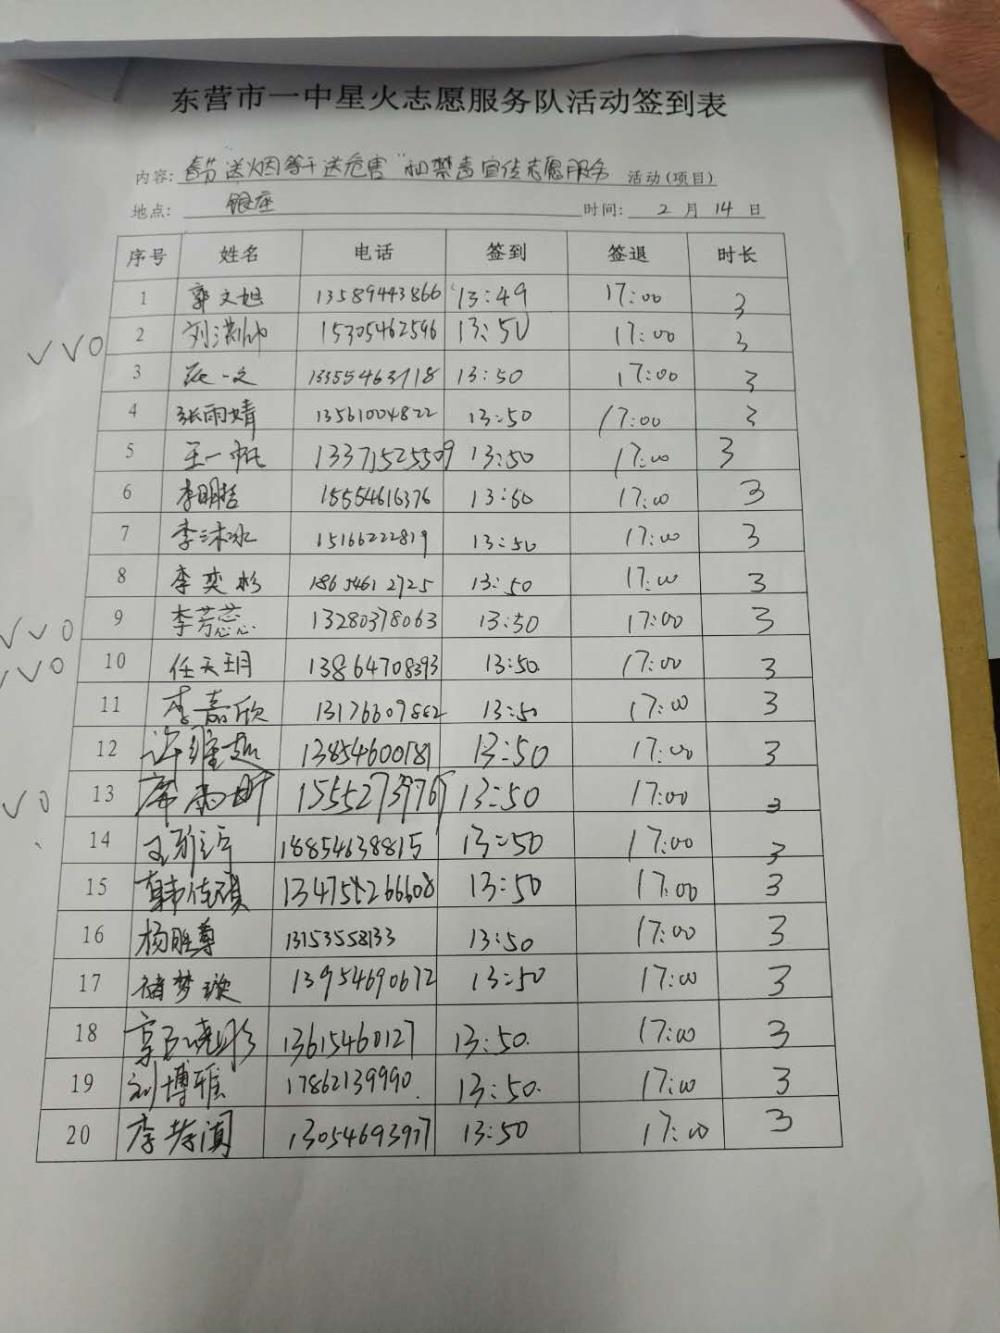 东营市一中星火志愿服务队活动签到表
内容: 春节送烟等于送危害"和禁毒宣传志愿服务 活动(项目)
地点: 银座 时间: 2 月 14 日
序号 姓名 电话 签到 签退 时长
1 郭文旭 13589443866 13:49 17:00 3
2 刘洪帅 15305462596 13:50 17:00 3
VVO
3 一文 13355463718 13:50 17:00 3
4 张雨婧 13561004822 13:50 17:00 3
5 王一帆 13371525509 13:50 17:00 3
6 李明哲 15554616376 13:50 17:00 3
7 李沐冰 15166222819 13:50 17:00 3
8 李奕杉 18654612725 13:50 17:00 3
9 李芳蕊 13280378063 13:50 17:00 3
VVO
10 任天玥 13864708393 13:50 17:00 3
VVO
11 李嘉欣 13176607862 13:50 17:00 3
12 许 13854600181 13:50 17:00 3
13 13:50 17:00 3
VO
14 王 18854638815 13:50 17:00 3
15 韩佳琪 13:50 17:00 3
16 杨胜尊 13153558133 13:50 17:00 3
17 褚梦璇 13954690672 13:50 17:00 3
18 13615460127 13:50. 17:00 3
19 刘博雅 17862139990. 13:50. 17:00 3
20 李 13054693977 13:50 17:00 3